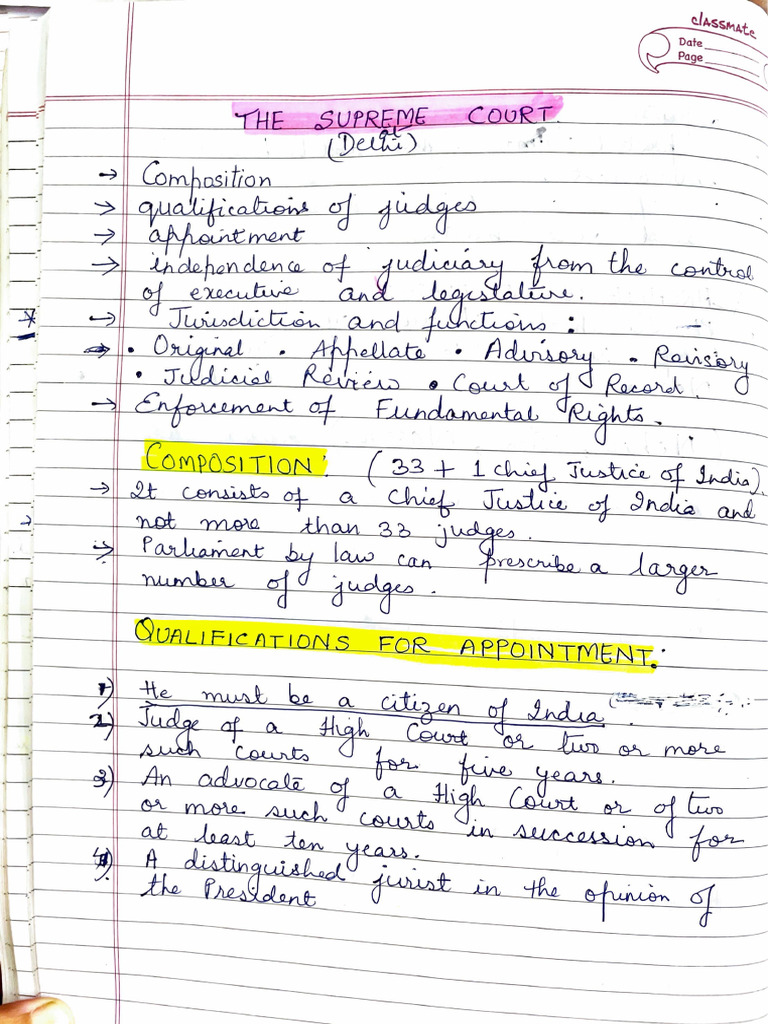 classmate
Date
Page
THE SUPREME COURT.
(Delhi)
→ Composition
→ qualifications of judges
→ appointment
→ independence of judiciary from the control
of executive and legistature.
* → Jurisdiction and functions :
→ • Original • Appellate • Advisory • Revisory
• Judicial Review • Court of Record.
→ Enforcement of Fundamental Rights.
COMPOSITION: (33 + 1 chief Justice of India)
→ It consists of a Chief Justice of India and
not more than 33 judges.
→ Parliament by law can prescribe a larger
number of judges.
QUALIFICATIONS FOR APPOINTMENT:
1) He must be a citizen of India.
2) Judge of a High Court or two or more
such courts for five years.
3) An advocate of a High Court or of two
or more such courts in succession for
at least ten years.
4) A distinguished jurist in the opinion of
the President